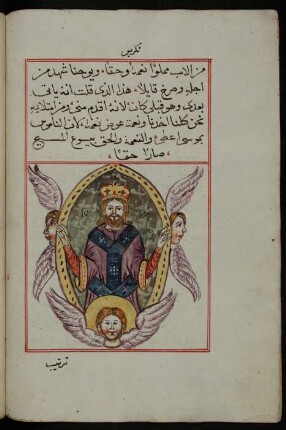 من الاب مملوا نعمة وحقا، ويوحنا شهد من
اجله وصرخ قايلا، هذا الذي قلت انه ياتي
بعدي وهو قبلي كان لانه اقدم مني، ومن امتلايه
نحن كلنا اخذنا ونعمة عوض نعمة، لان الناموس
بموسى اعطي والنعمة والحق بيسوع المسيح
صارا حقا